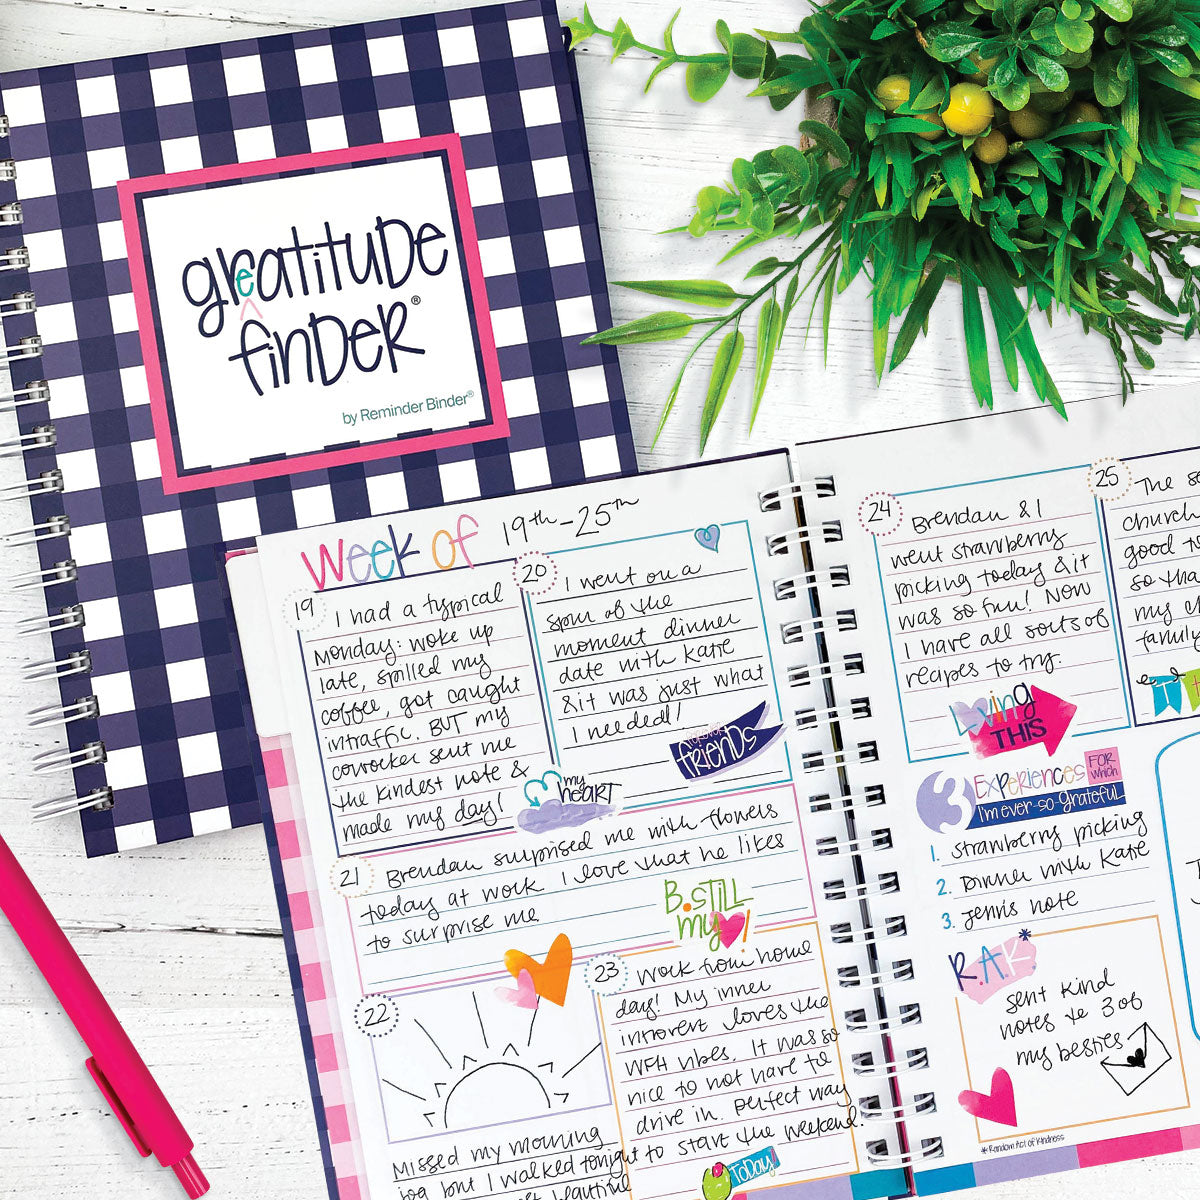 greatitude
finder®
by Reminder Binder®
Week of 19th-25th
19
I had a typical
Monday: woke up
late, spilled my
coffee, got caught
in traffic. BUT my
coworker sent me
the kindest note &
made my day!
my
heart
20
I went on a
spur of the
moment dinner
date with Katie
& it was just what
I needed!
friends
21
Brendan surprised me with flowers
today at work I love that he likes
to surprise me
B.still
my !
22
Missed my morning
jog but I walked tonight
beautiful
23
Work from home
day! My inner
introvert loves the
WFH vibes. It was so
nice to not have to
drive in. perfect way
to start the weekend.
Today!
24
Brendan & I
went strawberry
picking today & it
was so fun! Now
I have all sorts of
recipes to try.
Loving
THIS
25
The
church
good
so tha
my
family
3 Experiences FOR which
I'm ever-so-grateful
1. strawberry picking
2. Dinner with Katie
3. Jenn's note
R.A.K*
sent kind
notes to 3 of
my besties
*Random Act of Kindness